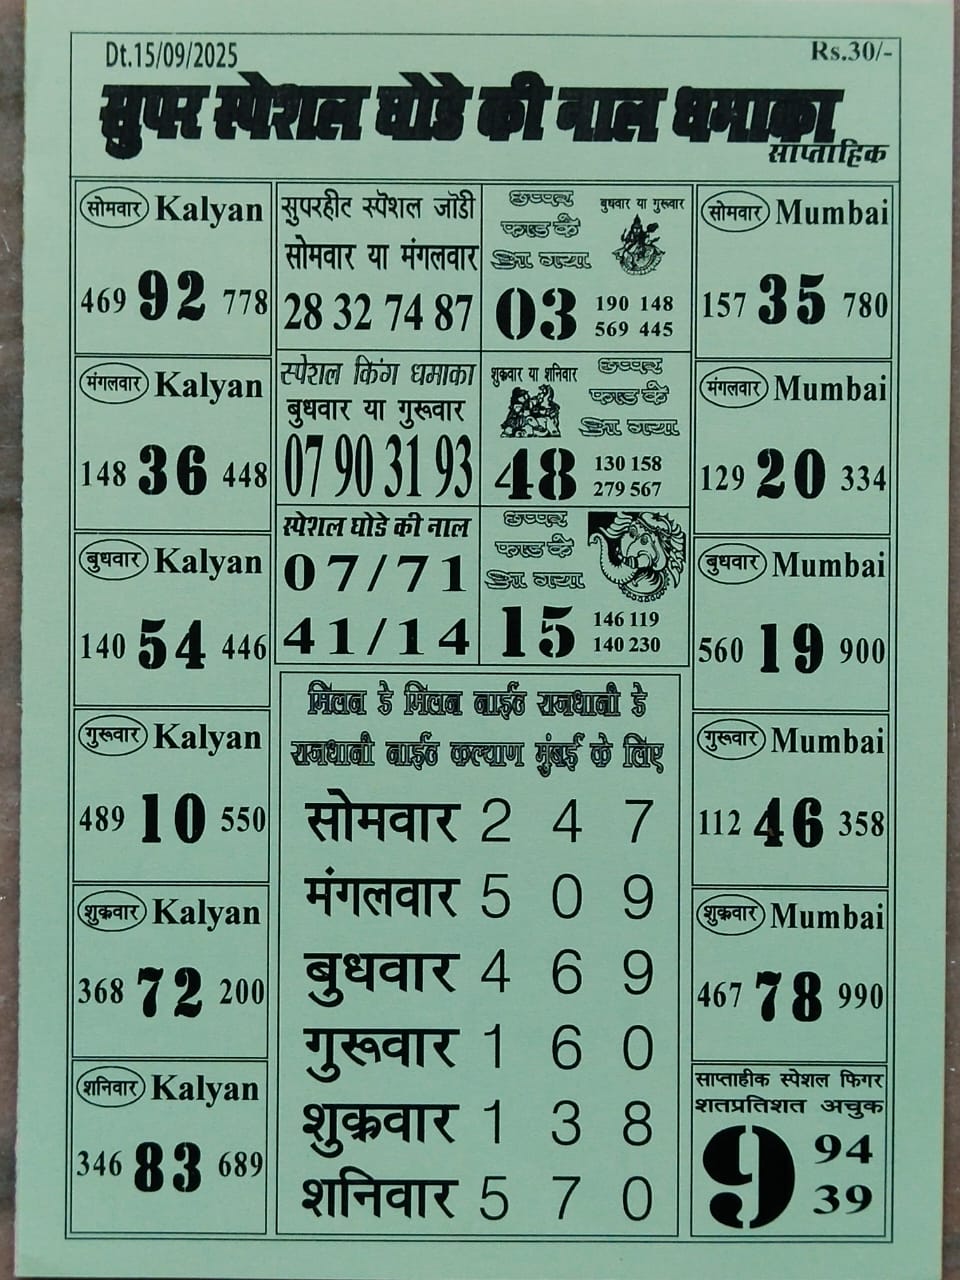 Dt.15/09/2025
Rs.30/-
सुपर स्पेशल घोडे की नाल धमाका
साप्ताहिक
सोमवार Kalyan
469 92 778
मंगलवार Kalyan
148 36 448
बुधवार Kalyan
140 54 446
गुरूवार Kalyan
489 10 550
शुक्रवार Kalyan
368 72 200
शनिवार Kalyan
346 83 689
सुपरहीट स्पेशल जोडी
सोमवार या मंगलवार
28 32 74 87
स्पेशल किंग धमाका
बुधवार या गुरूवार
07 90 31 93
स्पेशल घोडे की नाल
07/71
41/14
छप्पर
फाड के
आ गया
बुधवार या गुरूवार
03
190 148
569 445
शुक्रवार या शनिवार
छप्पर
फाड के
आ गया
48
130 158
279 567
छप्पर
फाड के
आ गया
15
146 119
140 230
मिलन डे मिलन नाईट राजधानी डे
राजधानी नाईट कल्याण मुंबई के लिए
सोमवार 2 4 7
मंगलवार 5 0 9
बुधवार 4 6 9
गुरूवार 1 6 0
शुक्रवार 1 3 8
शनिवार 5 7 0
सोमवार Mumbai
157 35 780
मंगलवार Mumbai
129 20 334
बुधवार Mumbai
560 19 900
गुरूवार Mumbai
112 46 358
शुक्रवार Mumbai
467 78 990
साप्ताहीक स्पेशल फिगर
शतप्रतिशत अचुक
9
94
39